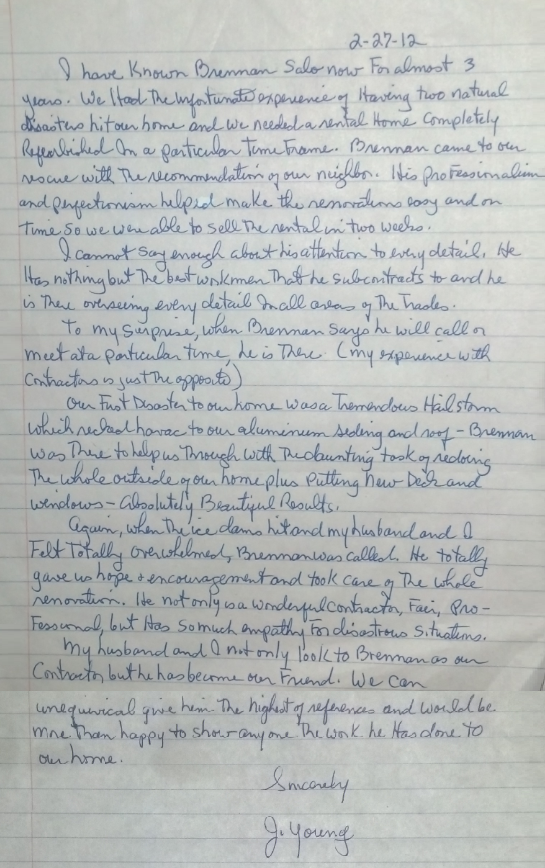 2-27-12
I have Known Brennan Salo now For almost 3
years. We Had The Unfortunate experience of Having two natural
disasters hit our home and we needed a rental Home Completely
Refurbished In a particular Time Frame. Brennan came to our
rescue with The recommendation of our neighbor. His professionalism
and perfectionism helped make the renovations easy and on
Time so we were able to sell The rental in two weeks.
I cannot say enough about his attention to every detail. He
Has nothing but The best workmen That he subcontracts to and he
is There overseeing every detail In all areas of The Trades.
To my surprise, when Brennan says he will call or
meet at a particular time, he is There. (my experience with
Contractors is just The opposite)
Our First Disaster to our home was a Tremendous Hail storm
which reeked havac to our aluminum sideing and roof - Brennan
was There to help us Through with The daunting task of redoing
The whole outside of our home plus Putting New Deck and
windows - Absolutely Beautiful Results.
Again, when The ice dams hit and my husband and I
Felt Totally overwhelmed, Brennan was called. He totally
gave us hope + encouragement and took care of The whole
renovation. He not only is a wonderful contractor, Fair, Pro-
Fessional, but Has so much empathy For disastrous situations.
My husband and I not only look to Brennan as our
Contractor but he has become our Friend. We can
unequivical give him The highest of references and would be
more Than happy to show anyone The work he Has done To
our home.
Sincerely
J. Young